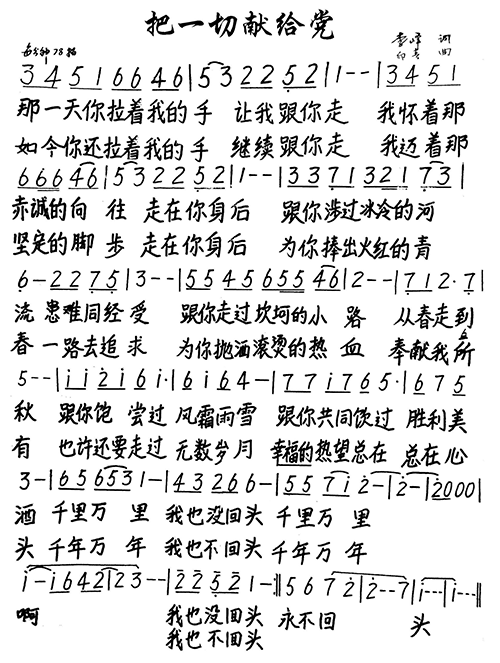 把一切献给党
每分钟78拍 李峰 词
印青 曲
3 4 5 1 6 6 4 6 | 5 3 2 2 5 2 | 1 - - | 3 4 5 1
那一天你拉着我的手 让我跟你走 我怀着那
如今你还拉着我的手 继续跟你走 我迈着那
6 6 6 4 6 | 5 3 2 2 5 2 | 1 - - | 3 3 7 1 3 2 1 7 3 |
赤诚的向 往 走在你身后 跟你涉过冰冷的河
坚定的脚 步 走在你身后 为你捧出火红的青
6 - 2 2 7 5 | 3 - - | 5 5 4 5 6 5 5 4 6 | 2 - - | 7 1 2 · 7 |
流 患难同经受 跟你走过坎坷的小 路 从春走到
春 一路去追求 为你抛洒滚烫的热 血 奉献我所
5 - - | i i 2 i 6 i · | 6 i 6 4 - | 7 7 i 7 6 5 · | 6 7 5
秋 跟你饱 尝过 风霜雨雪 跟你共同饮过 胜利美
有 也许还要走过 无数岁月 幸福的热望总在 总在心
3 - | 6 5 6 5 3 1 - | 4 3 2 6 6 - | 5 5 7 i 2 - | 2 - | 2 0 0 0 |
酒 千里万 里 我也没回头 千里万 里
头 千年万 年 我也不回头 千年万 年
i - i 6 4 2 | 2 3 - - | 2 2 5 2 1 - || 5 6 7 2 | 2 - - 7 | i - - - | i - - - ||
啊 我也没回头 永不回 头
我也不回头